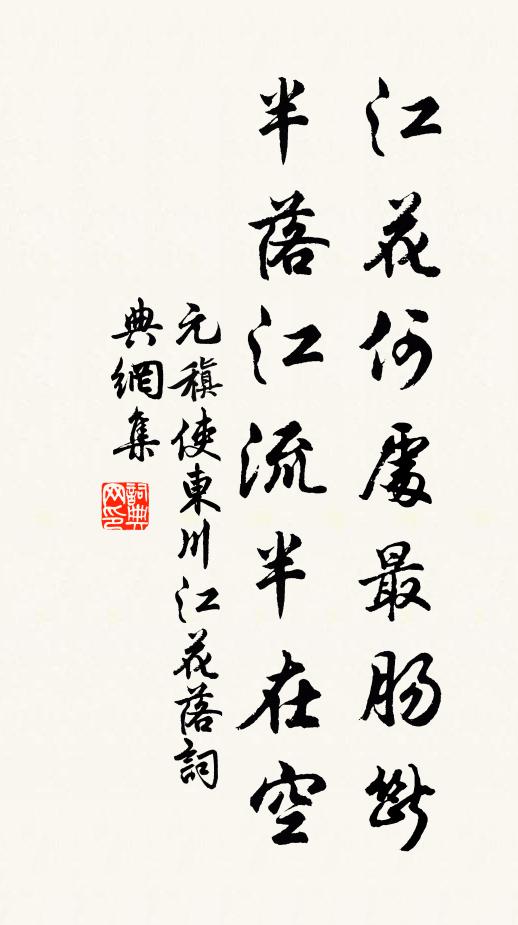 江花何處最肠斷
半落江流半在空
元稹使東川江花落詞
典網集
詞典网印